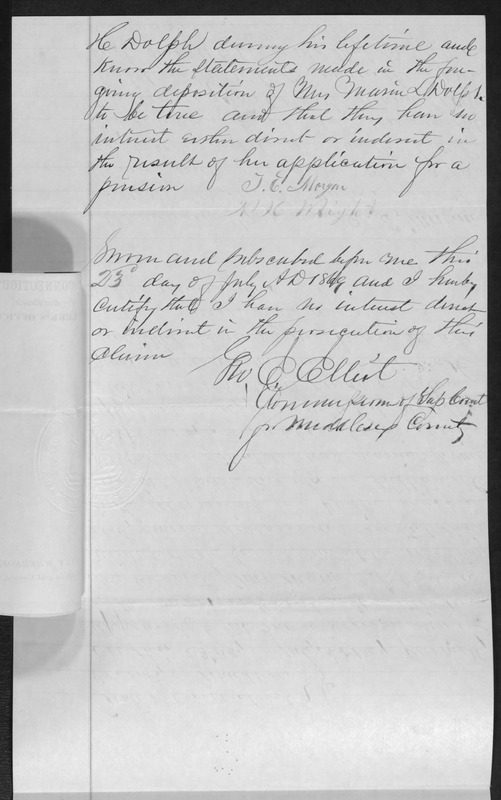 H Dolph during his lifetime and
know the statements made in the fore-
going deposition of Mrs Maria L Dolph
to be true and that they have no
interest either direct or indirect in
the result of her application for a
pension T. E. Morgan
Wright
Sworn and subscribed before me this
23d day of July A D 1869 and I hereby
certify that I have no interest direct
or indirect in the prosecution of this
claim
Geo E Elliot
Commissioner of Sup Court
for Middlesex County